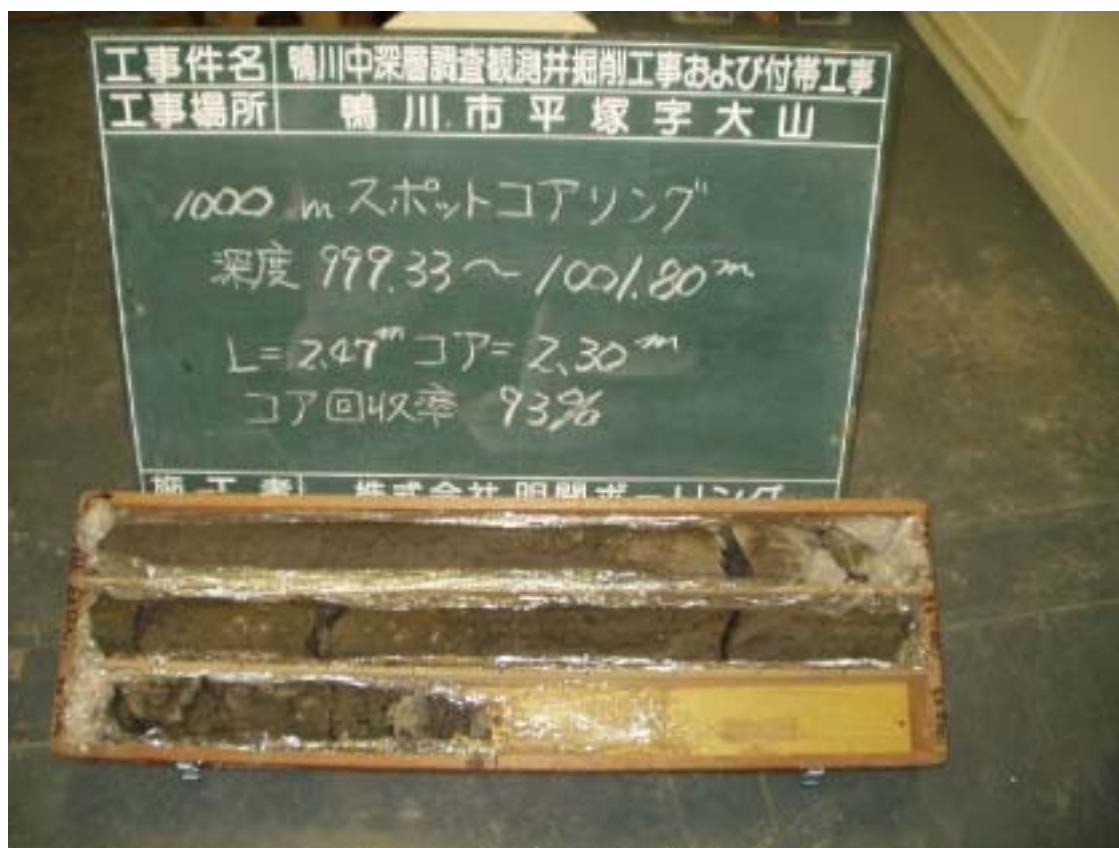 工事件名 鴨川中深層調査観測井掘削工事および付帯工事
工事場所 鴨川市平塚字大山
1000 m スポットコアリング
深度 999.33～1001.80 m
L=2.47m コア=2.30m
コア回収率 93%
施工者 株式会社 明間ボーリング